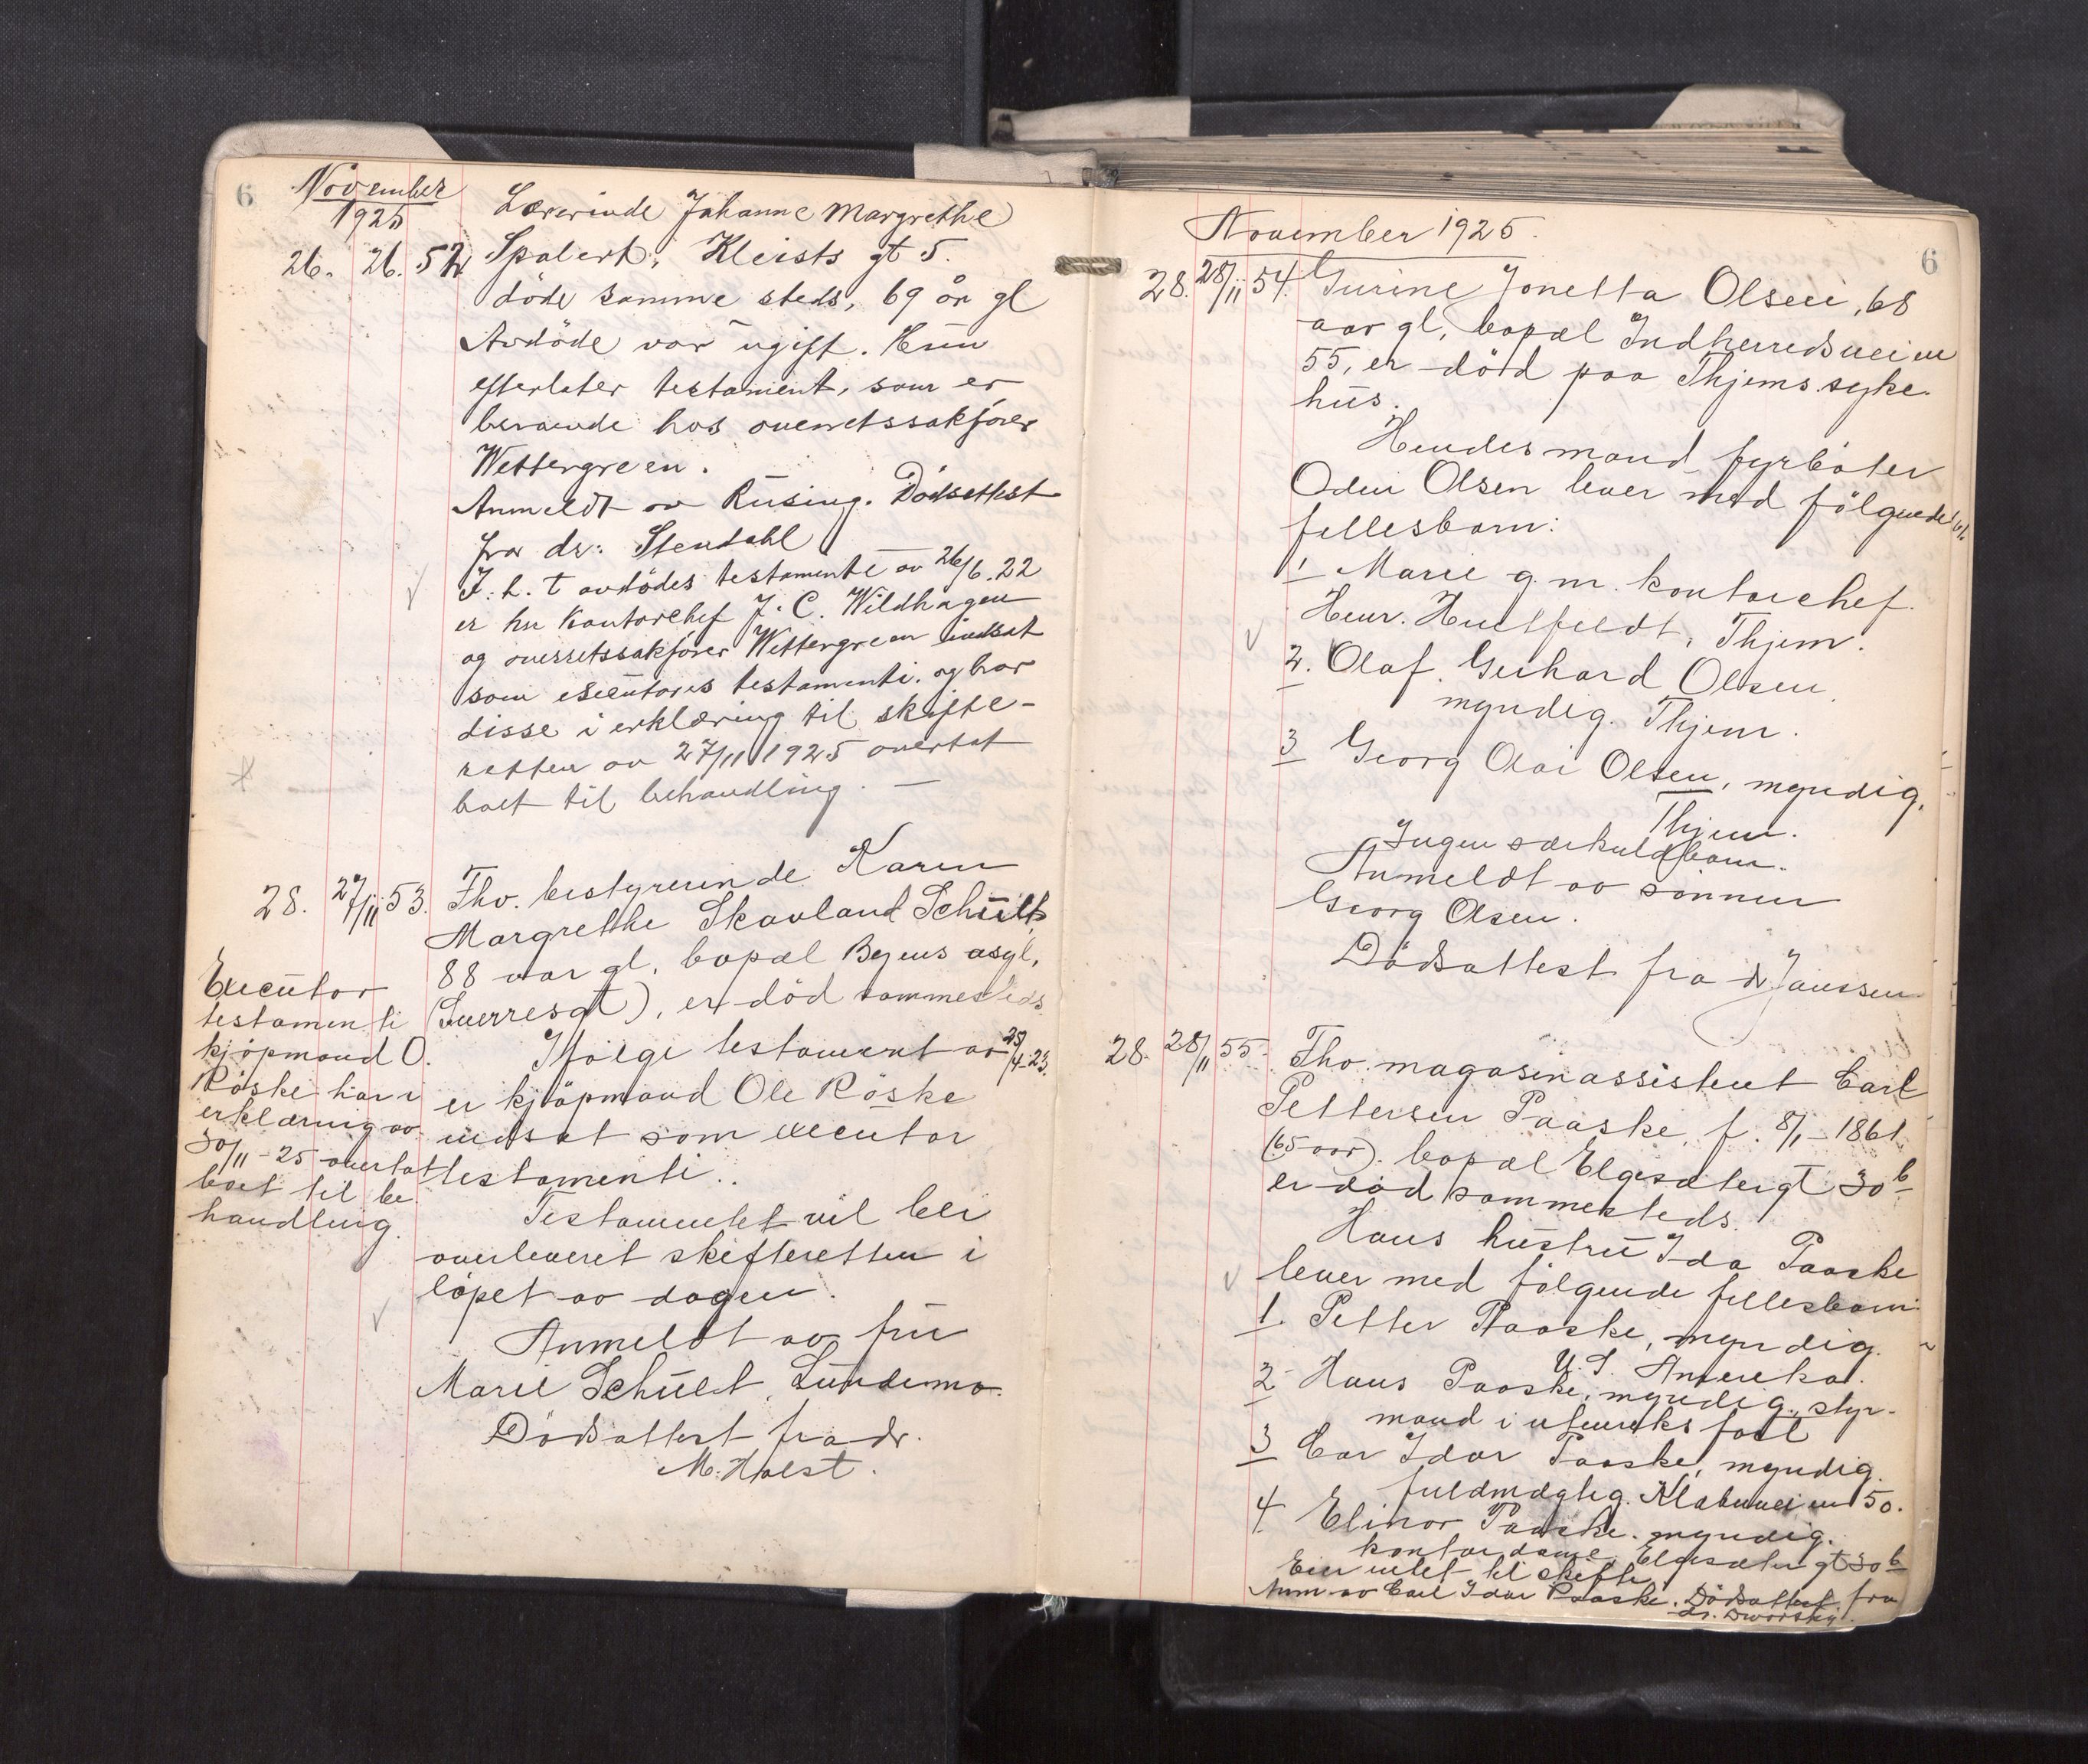 6
November
1925
Lærerinde Johanne Margrethe
26. 26. 52. Spabert, Kleists gt 5.
döde samme steds, 69 år gl
Avdöde var ugift. Hun
efterlater testament, som er
beroende hos overretssakförer
Wettergreen.
Anmeldt av Rusing. Dödsattest
fra dr: Stendahl
I. h. t avdödes testamente av 26/6.22
er hr Kontorchef J. C. Wildhagen
og overretssakförer Wettergreen indsat
som executores testamenti. og har
disse i erklæring til skifte-
retten av 27/11 1925 overtat
boet til behandling. —
28. 27/11 53. Fhv. bestyrerinde Karen
Margrethe Skavland Schult,
88 aar gl, bopæl Byens asyl,
(Sverresgt), er död sammesteds
Ifölge testament av 25/4-23.
er kjöpmand Ole Röske
indsat som executor
testamenti..
Testamentet vil bli
overleveret skifteretten i
löpet av dagen.
Anmeldt av fru
Marie Schult, Lundemo.
Dödsattest fra dr.
M. Holst.
Executor
testamenti
kjöpmand O.
Röske har i
erklæring av
30/11-25 overtat
boet til be-
handling.
November 1925.
6
28. 28/11 54. Gurine Jonetta Olsen, 68
aar gl, bopæl Indherredsveien
55, er död paa Thjems syke-
hus.
Hendes mand fyrböter
Odin Olsen lever med fölgende
fellesbarn:
1 Marie g. m. kontorchef
Henr. Huitfeldt, Thjem.
2. Olaf Gerhard Olsen,
myndig. Thjem.
3 Georg Olai Olsen, myndig,
Thjem.
Ingen særkuldbarn.
Anmeldt av sönnen
Georg Olsen.
Dödsattest fra dr Janssen
28. 28/11 55. Fhv. magasinassistent Carl
Pettersen Paaske, f. 8/1-1861
(65 aar). bopæl Elgesætergt 30b
er död sammesteds.
Hans hustru Ida Paaske
lever med fölgende fellesbarn:
1. Petter Paaske, myndig.
U. S. Amerika.
2 Hans Paaske, myndig, styr-
mand i utenriks fart
3 Car Idar Paaske, myndig.
fuldmægtig. Klæbuveien 50.
4 Elinor Paaske. myndig.
kontordame. Elgesætergt 30b
Eier intet til skifte.
Anm. av Carl Idar Paaske. Dödsattest fra
dr. Dworsky.